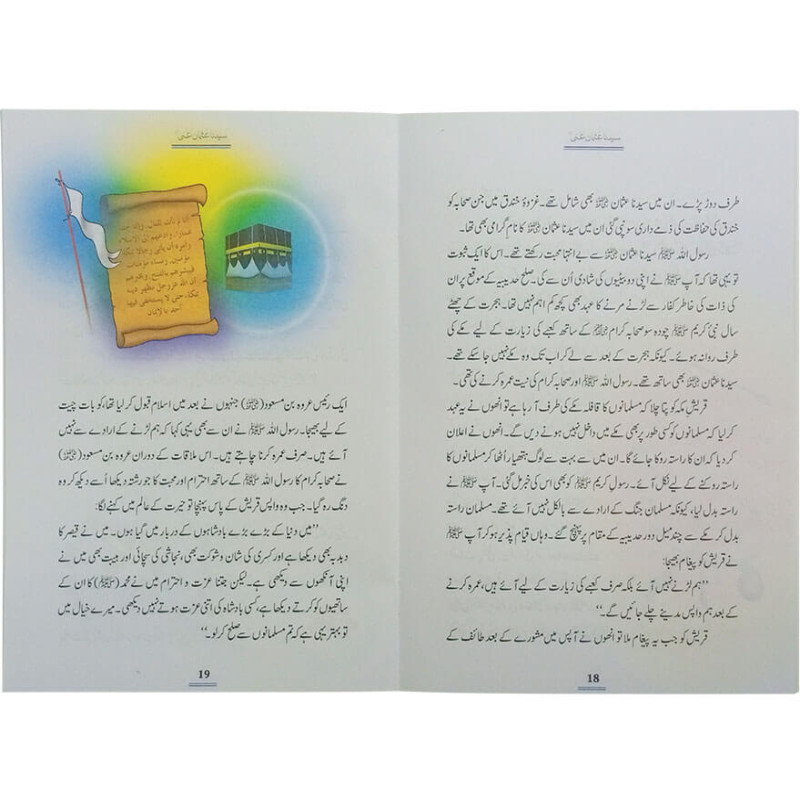 سیدنا عثمان غنیؓ
طرف دوڑ پڑے۔ ان میں سیدنا عثمان ﷜ بھی شامل تھے۔ غزوۂ خندق میں جن صحابہ کو
خندق کی حفاظت کی ذمے داری سونپی گئی ان میں سیدنا عثمان ﷜ کا نام گرامی بھی تھا۔
رسول اللہ ﷺ سیدنا عثمان ﷜ سے بے انتہا محبت رکھتے تھے۔ اس کا ایک ثبوت
تو یہی تھا کہ آپ ﷺ نے اپنی دو بیٹیوں کی شادی اُن سے کی۔ صلح حدیبیہ کے موقع پر ان
کی ذات کی خاطر کفار سے لڑنے مرنے کا عہد بھی کچھ کم اہم نہیں تھا۔ ہجرت کے چھٹے
سال نبیٔ کریم ﷺ چودہ سو صحابہ کرام ﷢ کے ساتھ کعبے کی زیارت کے لیے مکے کی
طرف روانہ ہوئے۔ کیونکہ ہجرت کے بعد سے لے کر اب تک وہ مکے نہیں جا سکے تھے۔
سیدنا عثمان ﷜ بھی ساتھ تھے۔ رسول اللہ ﷺ اور صحابہ کرام کی نیت عمرہ کرنے کی تھی۔
قریشِ مکہ کو پتا چلا کہ مسلمانوں کا قافلہ مکے کی طرف آ رہا ہے تو انھوں نے یہ عہد
کر لیا کہ مسلمانوں کو کسی طور پر بھی مکے میں داخل نہیں ہونے دیں گے۔ انھوں نے اعلان
کر دیا کہ ان کا راستہ روکا جائے گا۔ ان میں سے بہت سے لوگ ہتھیار اُٹھا کر مسلمانوں کا
راستہ روکنے کے لیے نکل آئے۔ رسول کریم ﷺ کو بھی اس کی خبر مل گئی۔ آپ ﷺ نے
راستہ بدل لیا، کیونکہ مسلمان جنگ کے ارادے سے بالکل نہیں آئے تھے۔ مسلمان راستہ
بدل کر مکے سے چند میل دور حدیبیہ کے مقام پر پہنچ گئے۔ وہاں قیام پذیر ہو کر آپ ﷺ
نے قریش کو پیغام بھیجا:
’’ہم لڑنے نہیں آئے بلکہ صرف کعبے کی زیارت کے لیے آئے ہیں، عمرہ کرنے
کے بعد ہم واپس مدینے چلے جائیں گے۔‘‘
قریش کو جب یہ پیغام ملا تو انھوں نے آپس میں مشورے کے بعد طائف کے
18
سیدنا عثمان غنیؓ
ایک رئیس عروہ بن مسعود (﷜) جنہوں نے بعد میں اسلام قبول کر لیا تھا، کو بات چیت
کے لیے بھیجا۔ رسول اللہ ﷺ نے ان سے بھی یہی کہا کہ ہم لڑنے کے ارادے سے نہیں
آئے ہیں۔ صرف عمرہ کرنا چاہتے ہیں۔ اس ملاقات کے دوران عروہ بن مسعود (﷜)
نے صحابہ کرام کا رسول اللہ ﷺ کے ساتھ احترام اور محبت کا جو رشتہ دیکھا اُسے دیکھ کر وہ
دنگ رہ گیا۔ جب وہ واپس قریش کے پاس پہنچا تو حیرت کے عالم میں کہنے لگا:
’’میں دنیا کے بڑے بڑے بادشاہوں کے دربار میں گیا ہوں۔ میں نے قیصر کا
دبدبہ بھی دیکھا ہے اور کسریٰ کی شان و شوکت بھی، نجاشی کی سچائی اور ہیبت بھی میں نے
اپنی آنکھوں سے دیکھی ہے۔ لیکن جتنا عزت و احترام میں نے محمد (ﷺ) کا ان کے
ساتھیوں کو کرتے دیکھا ہے، کسی بادشاہ کی اتنی عزت ہوتے نہیں دیکھی۔ میرے خیال میں
تو بہتر یہی ہے کہ تم مسلمانوں سے صلح کر لو۔‘‘
19